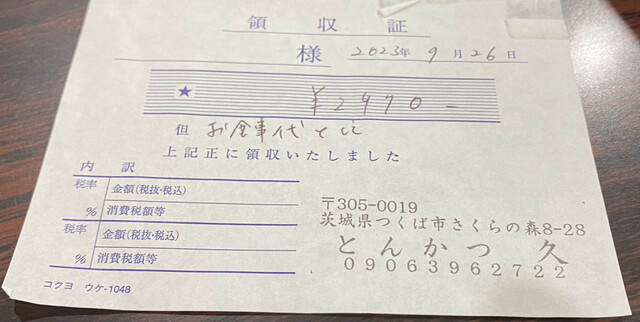 領収証
様 2023年 9月 26日
★ ¥2970-
但 お食事代として
上記正に領収いたしました
内訳
税率 金額(税抜・税込)
% 消費税額等
税率 金額(税抜・税込)
% 消費税額等
〒305-0019
茨城県つくば市さくらの森8-28
とんかつ 久
09063962722
コクヨ ウケ-1048